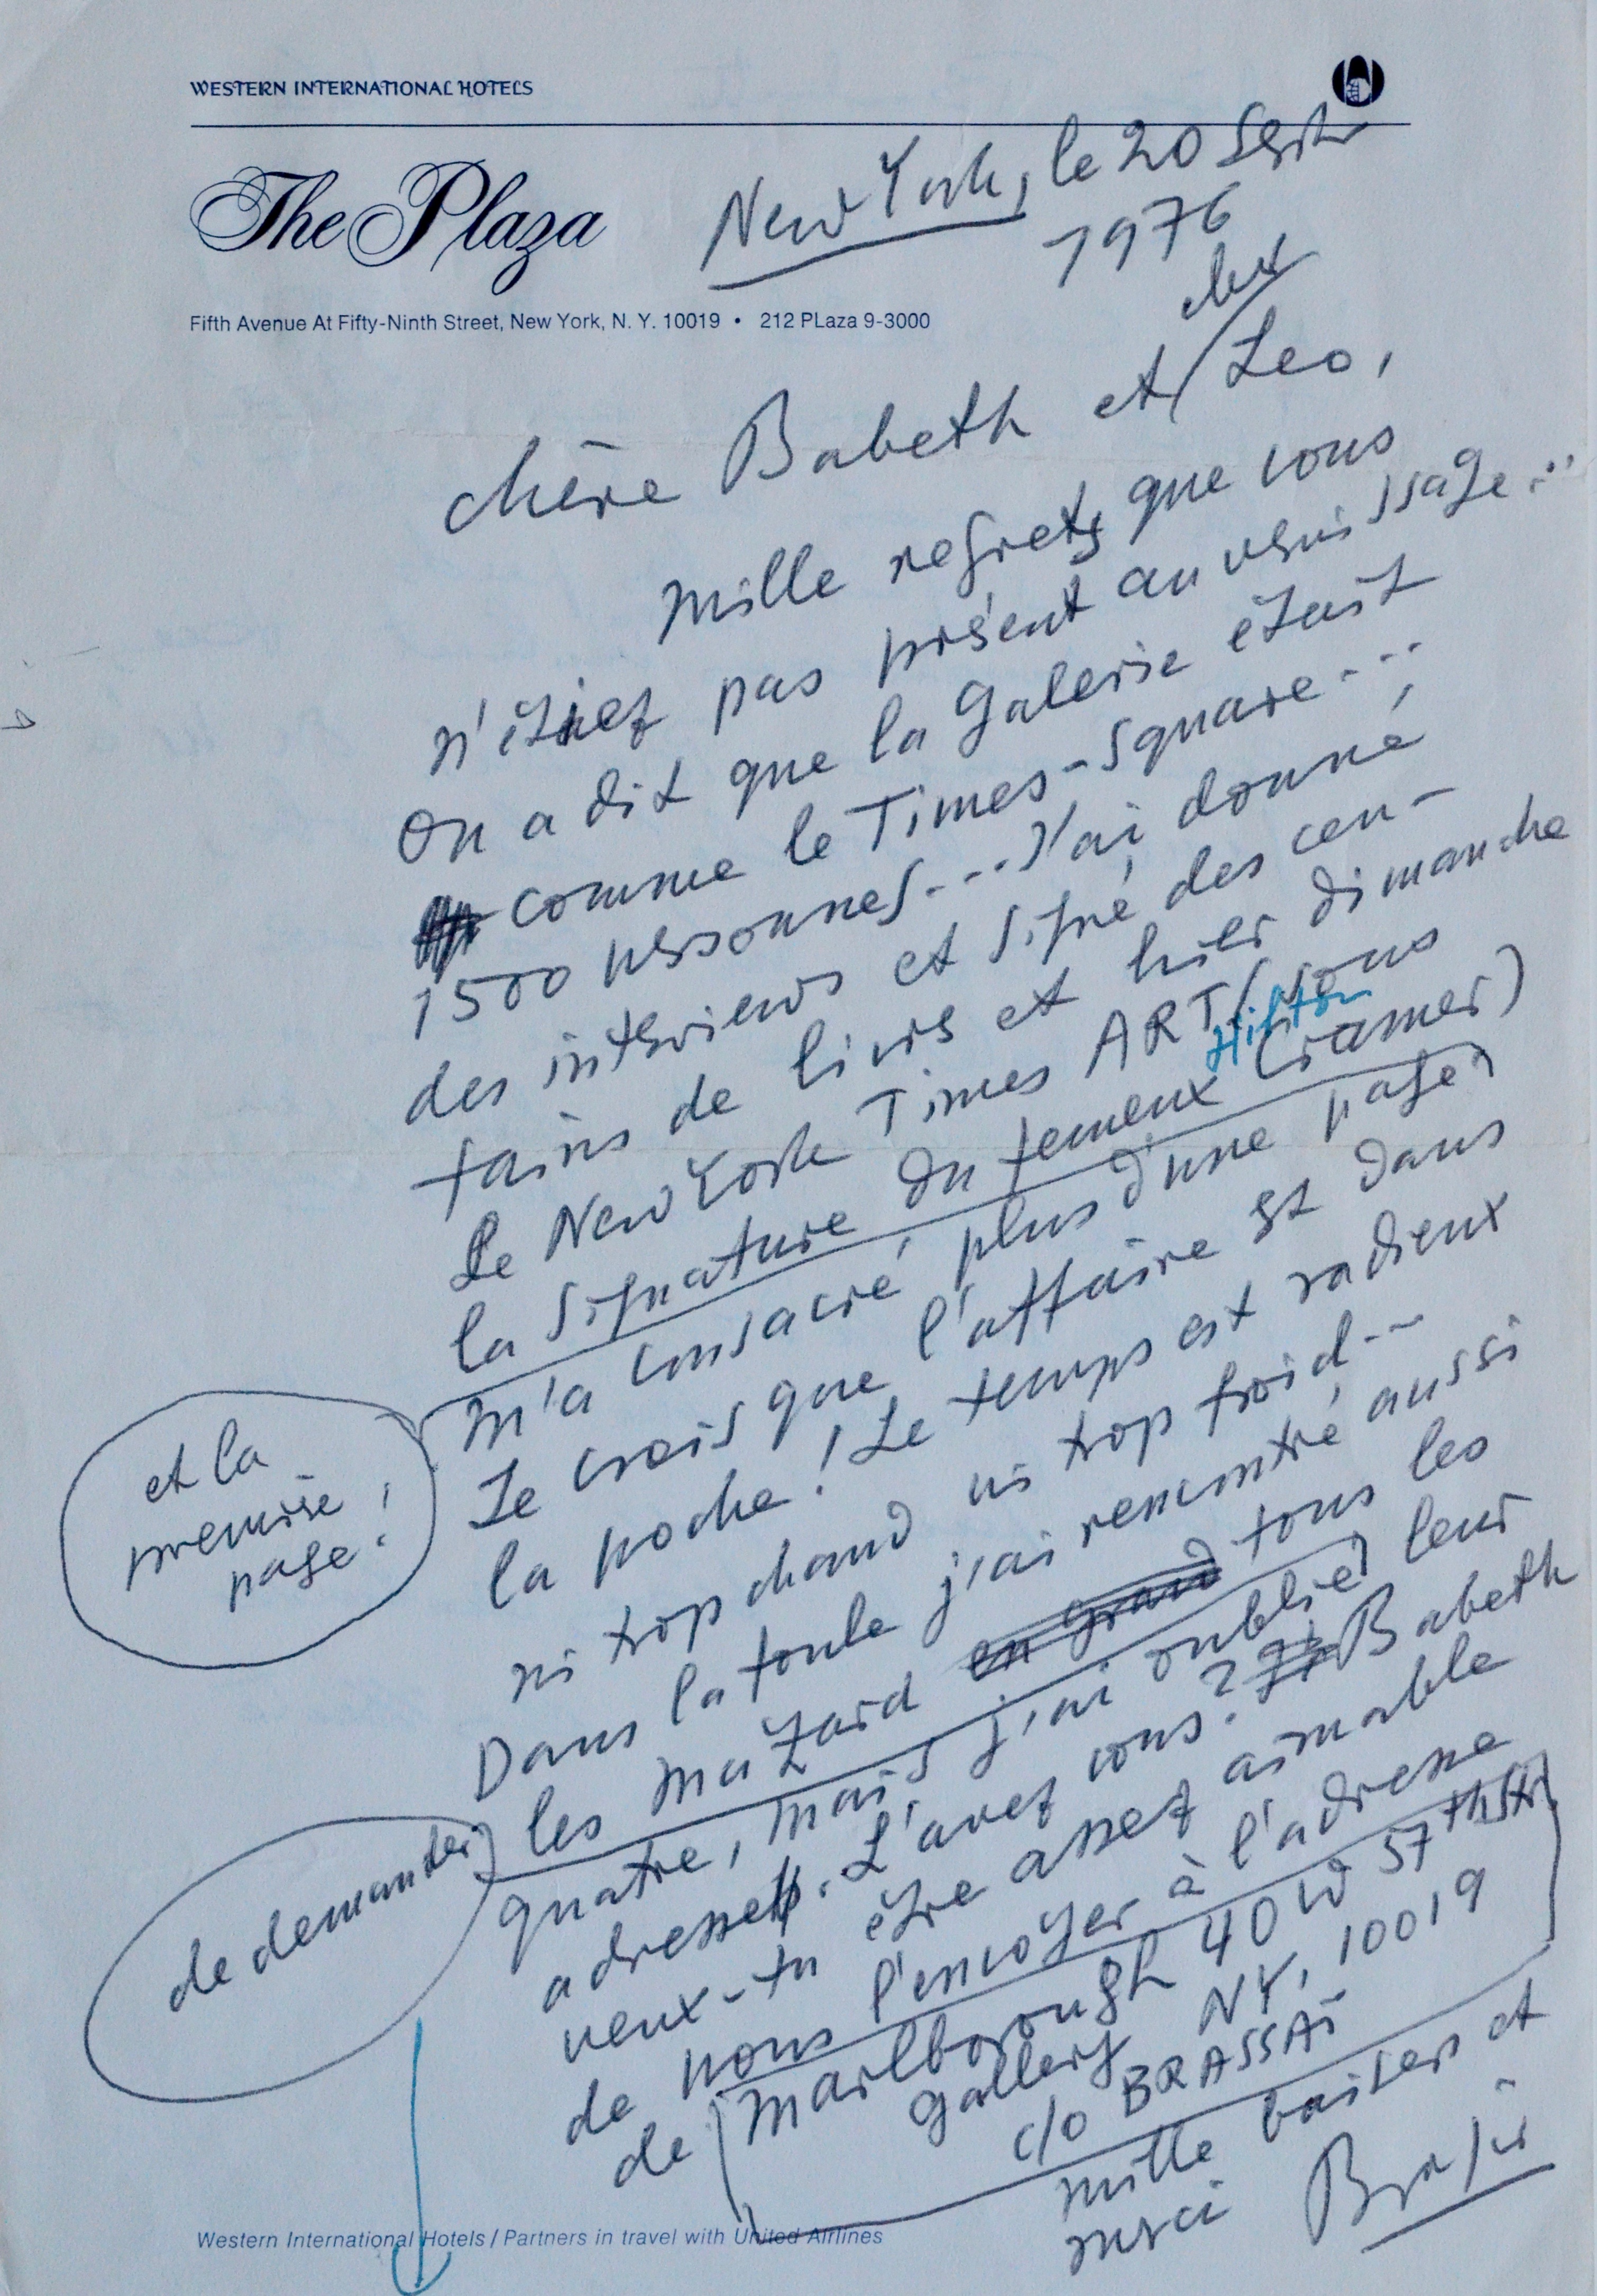 WESTERN INTERNATIONAL HOTELS
The Plaza
Fifth Avenue At Fifty-Ninth Street, New York, N. Y. 10019 • 212 PLaza 9-3000
New York, le 20 Sept
1976
cher
chère Babeth et / Leo,
Mille regrets que vous
n'étiez pas présent au vernissage...
On a dit que la Galerie était
comme le Times-Square...
1500 personnes... J'ai donné
des interviews et signé des cen-
tains de livrs et hier dimanche
Le New York Times ART (sous
Hilton
la signature du fameux Cramer)
m'a consacré plus d'une page
et la
première
page !
Je crois que l'affaire est dans
la poche ! Le temps est radieux
ni trop chaud ni trop froid...
Dans la foule j'ai rencontré aussi
les Mazard en grand tous les
quatre, mais j'ai oublié leur
de demander
adresse. L'avez vous ? Babeth
veux-tu être assez aimable
de nous l'envoyer à l'adresse
de Marlborough 40 W 57th Str
Gallery NY, 10019
c/o BRASSAÏ
mille baisers et
merci Brassaï
Western International Hotels / Partners in travel with United Airlines